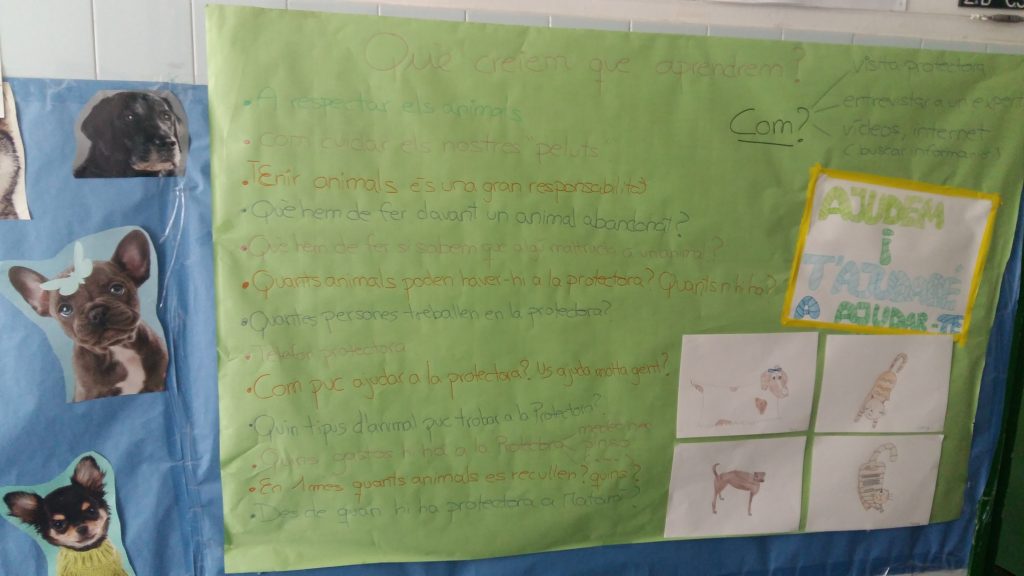 Què creiem que aprendrem?
• A respectar els animals
• Com cuidar els nostres "peluts"
• Tenir animals és una gran responsabilitat
• Què hem de fer davant un animal abandonat?
• Què hem de fer si sabem que algú maltracta a un animal?
• Quants animals poden haver-hi a la protectora? Quants n'hi ha?
• Quantes persones treballen en la protectora?
protectora
• Com puc ajudar a la protectora? Us ajuda molta gent?
• Quin tipus d'animal puc trobar a la Protectora?
• Quins gastos hi ha a la Protectora
pinso
• En 1 mes quants animals es recullen? quins?
• Des de quan hi ha protectora a Mataró?
Com?
visita protectora
entrevistar a un expert
vídeos, internet
(buscar informació)
AJUDEM
i
T'AJUDARÉ
A AJUDAR-TE